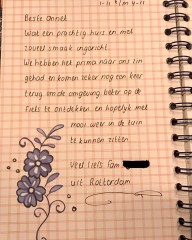 Beste Annet
Wat een prachtig huis en met
zoveel smaak ingericht.
We hebben het prima naar ons zin
gehad en komen zeker nog een keer
terug om de omgeving beter op de
fiets te ontdekken en hopelijk met
mooi weer in de tuin
te kunnen zitten.
Veel liefs Fam
uit Rotterdam